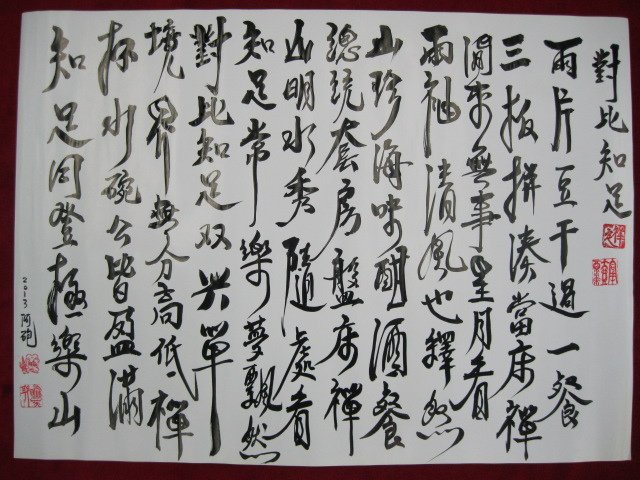 對比知足
兩片豆干過一餐
三板拼湊當床禪
閒來無事望月看
兩袖清風也釋然
山珍海味酣酒餐
總統套房盤床禪
山明水秀隨處看
知足常樂夢飄然
對比知足双興單
境界無分高低禪
杯水碗公皆盈滿
知足同登極樂山
2013 阿砲